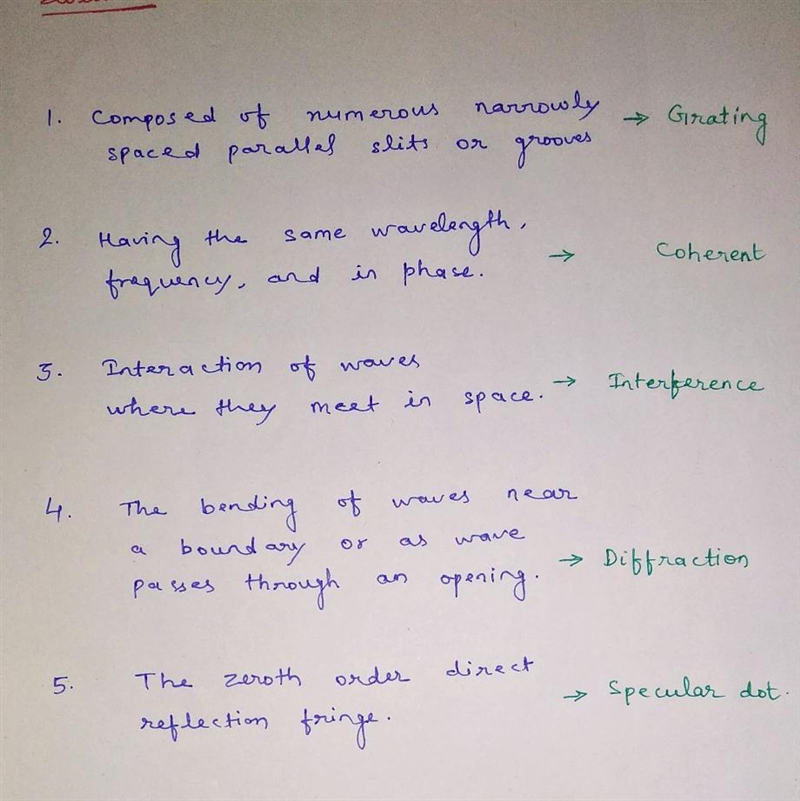 1. Composed of numerous narrowly → Grating
spaced parallel slits or grooves
2. Having the same wavelength, → Coherent
frequency, and in phase.
3. Interaction of waves → Interference
where they meet in space.
4. The bending of waves near
a boundary or as wave → Diffraction
passes through an opening.
5. The zeroth order direct → Specular dot.
reflection fringe.